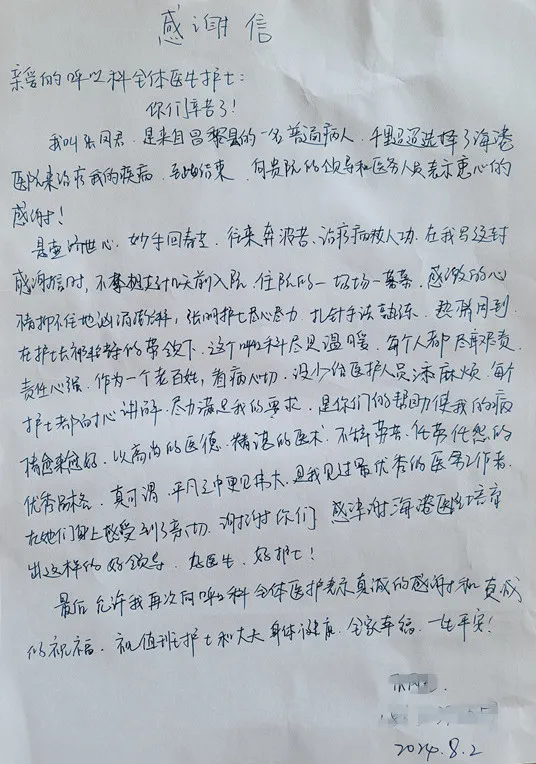 感谢信
亲爱的呼吸科全体医生护士：
你们辛苦了！
我叫张凤君，是来自昌黎县的一名普通病人，千里迢迢选择了海港
医院来治疗我的疾病，至此结束，向贵院的领导和医务人员表示衷心的
感谢！
悬壶济世心，妙手回春，往来奔波苦，治疗病救人功，在我写这封
感谢信时，不禁想起几天前入院，住院的一场场一幕幕，感激的心
情抑不住地，张明护士尽心尽力，扎针手法熟练，热情周到
在护士长的带领下，这个呼吸科尽显温暖，每个人都尽职尽责
责任心强，作为一个老百姓，看病心切，没少给医护人员添麻烦，每个
护士都耐心讲解，尽力满足我的要求，是你们的帮助使我的病
情愈来愈好，以高尚的医德，精湛的医术，不辞劳苦，任劳任怨的
优秀品格，真可谓，平凡之中更见伟大，是我见过最优秀的医务工作者，
在她们身上感受到了亲切，谢谢你们，感谢海港医院培育
出这样的好领导，好医生，好护士！
最后允许我再次向呼吸科全体医护表示真诚的感谢和真诚
的祝福，祝值班护士和大夫身体健康，全家幸福，一生平安！
2024.8.2